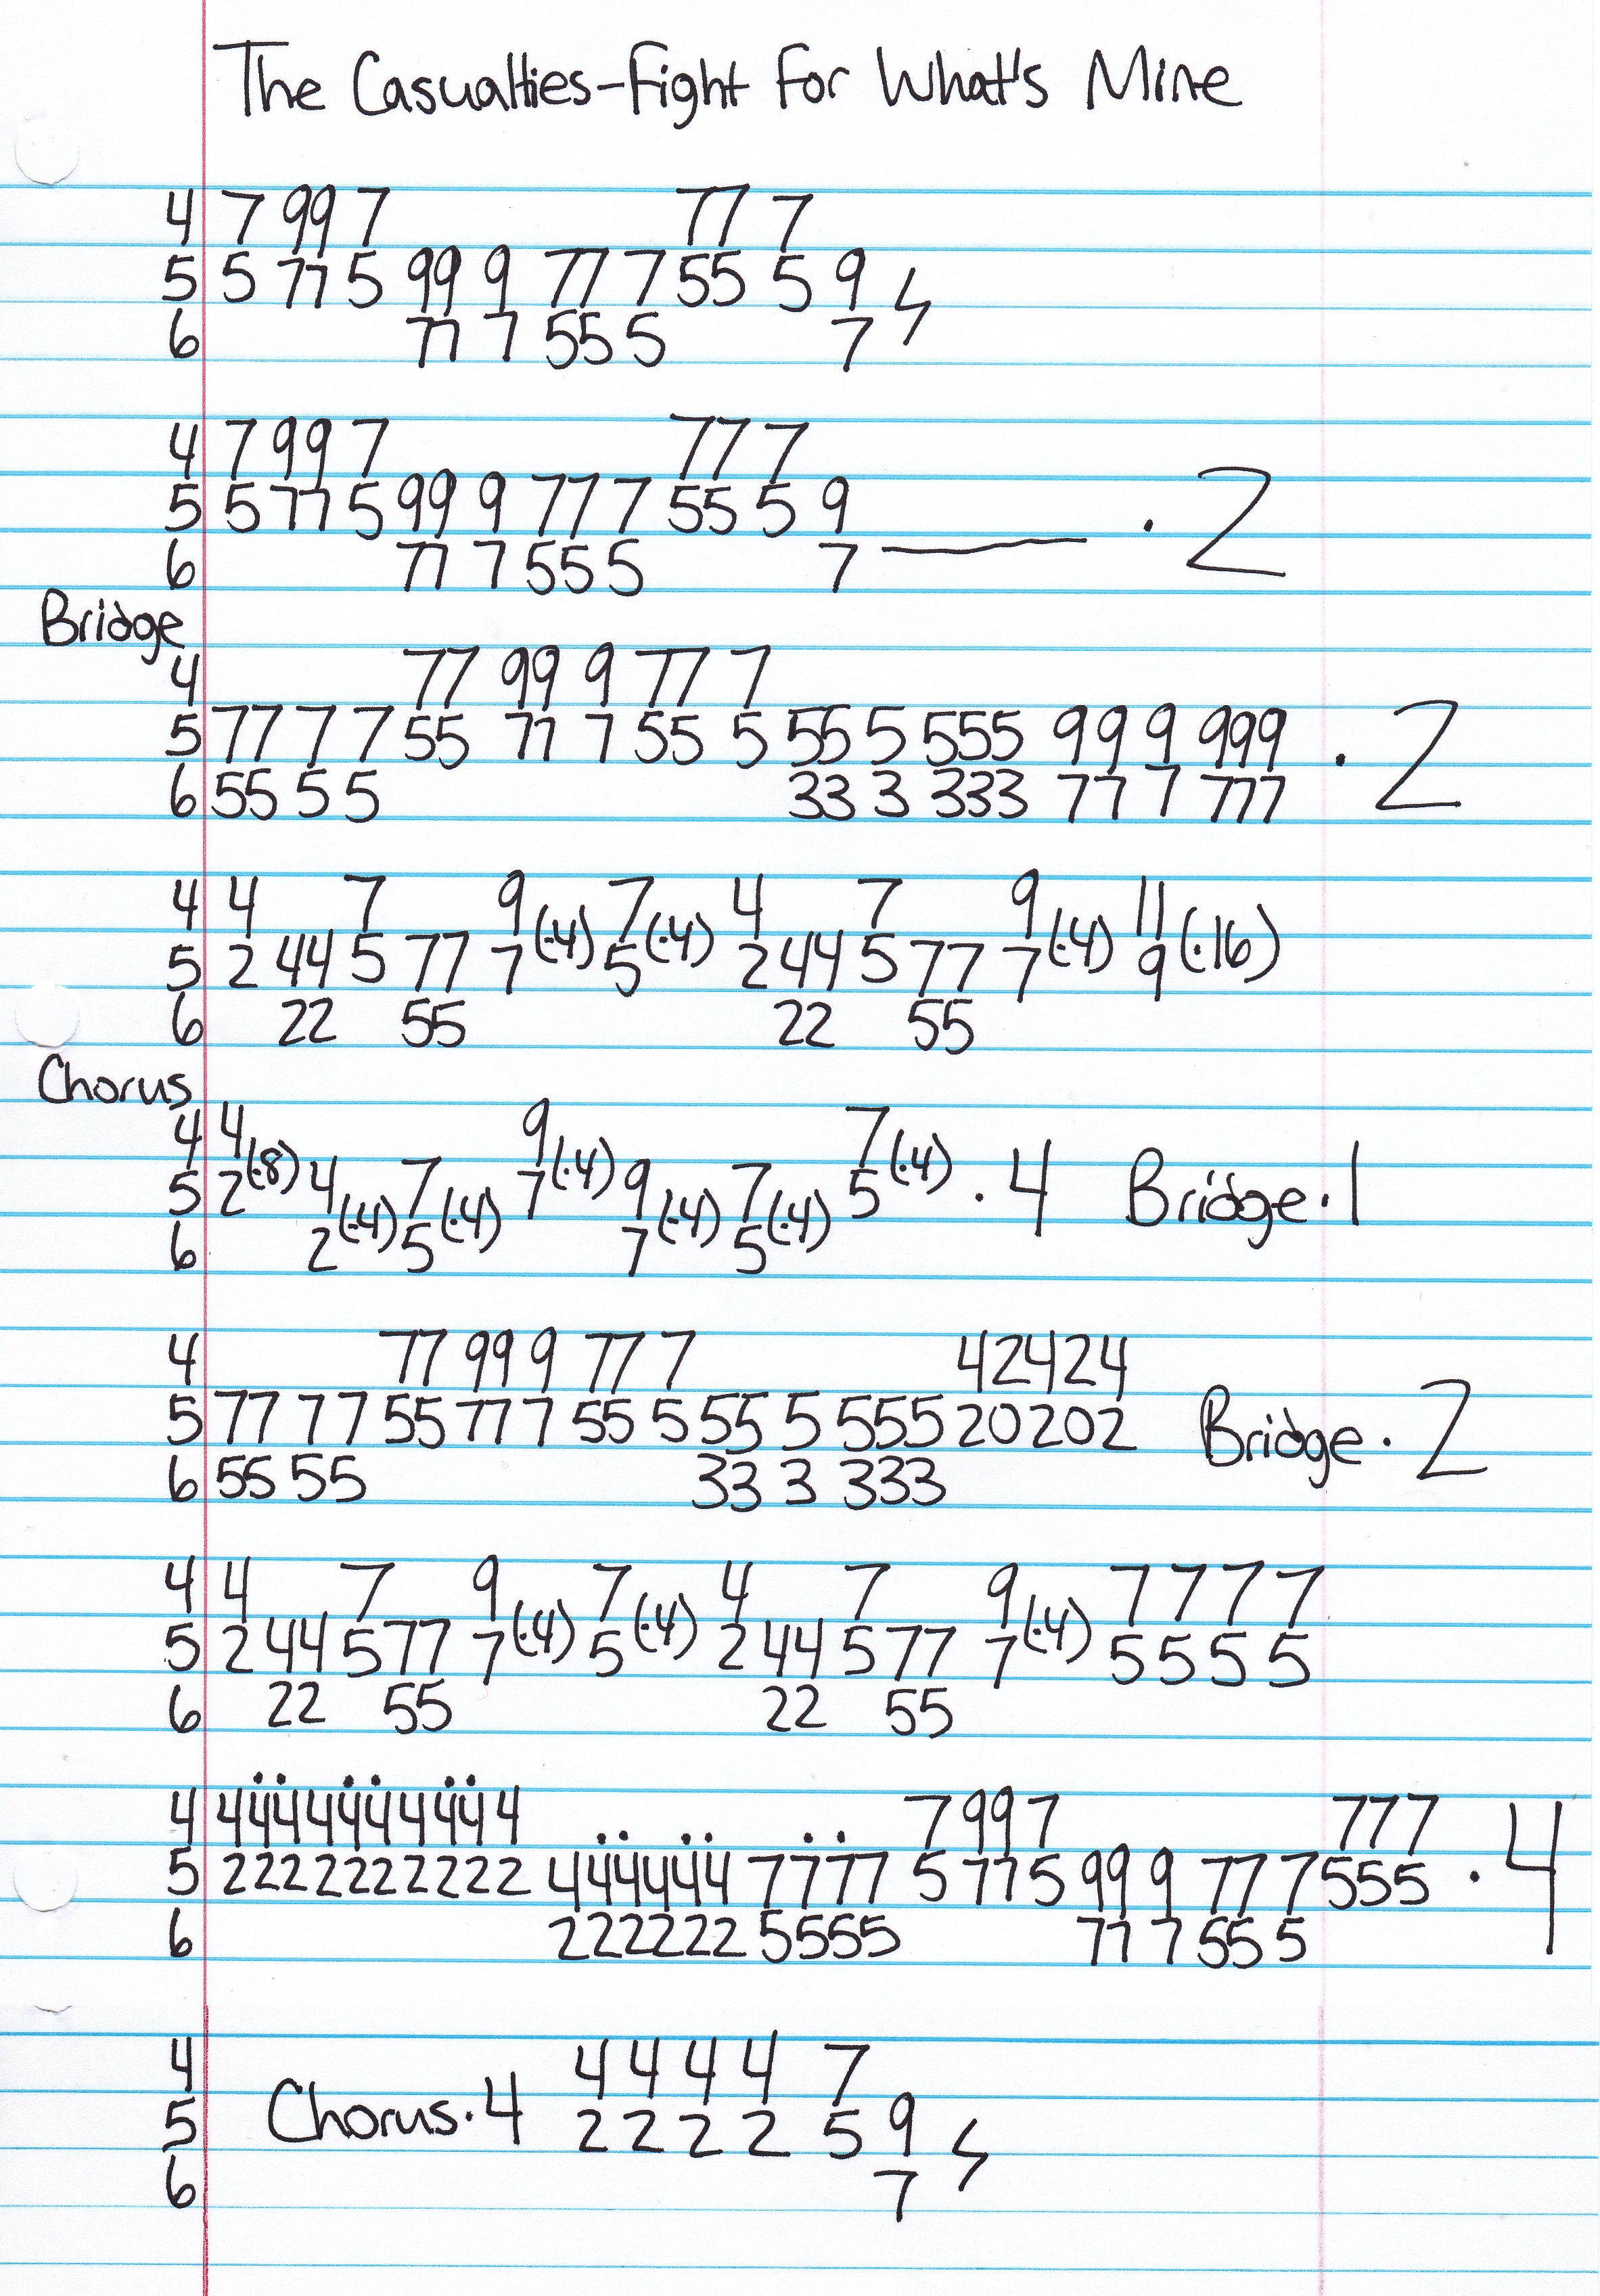 The Casualties-Fight For What's Mine
4 7 99 7 77 7
5 5 77 5 99 9 77 7 55 5 9
6 77 7 55 5 7
4 7 99 7 77 7
5 5 77 5 99 9 77 7 55 5 9 . 2
6 77 7 55 5 7
Bridge
4 77 99 9 77 7
5 77 7 7 55 77 7 55 5 55 5 555 99 9 999 . 2
6 55 5 5 33 3 333 77 7 777
4 4 7 9 (·4) 7 (·4) 4 7 9 (·4) 11 (·16)
5 2 44 5 77 7 5 2 44 5 77 7 9
6 22 55 22 55
Chorus
4 4 (·8) 9 (·4) 7 (·4)
5 2 4 (·4) 7 (·4) 7 9 (·4) 7 (·4) 5 . 4 Bridge · 1
6 2 5 7 5
4 77 99 9 77 7 42424
5 77 77 55 77 7 55 5 55 5 555 20202 Bridge · 2
6 55 55 33 3 333
4 4 7 9 (·4) 7 (·4) 4 7 9 (·4) 7 7 7 7
5 2 44 5 77 7 5 2 44 5 77 7 5 5 5 5
6 22 55 22 55
4 4444444444 7 99 7 777
5 2222222222 444444 7777 5 77 5 99 9 77 7 555 . 4
6 222222 5555 77 7 55 5
4 4 4 4 4 7
5 Chorus · 4 2 2 2 2 5 9
6 7